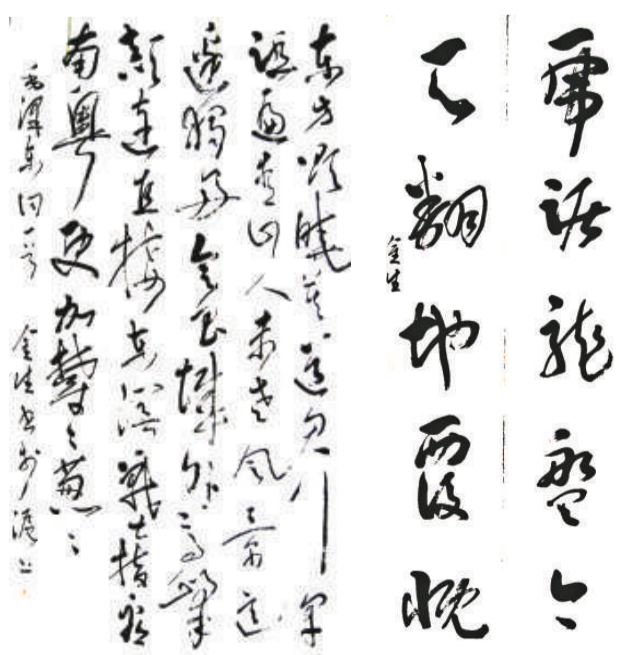 虎踞龍盤今
天翻地覆慨
金生
东方欲曉莫道君行早
踏遍青山人未老風景這
邊獨好會昌城外高峰
顛連直接东溟戰士指看
南粵更加鬱々蔥々
毛澤东词一首 金生书於滬上